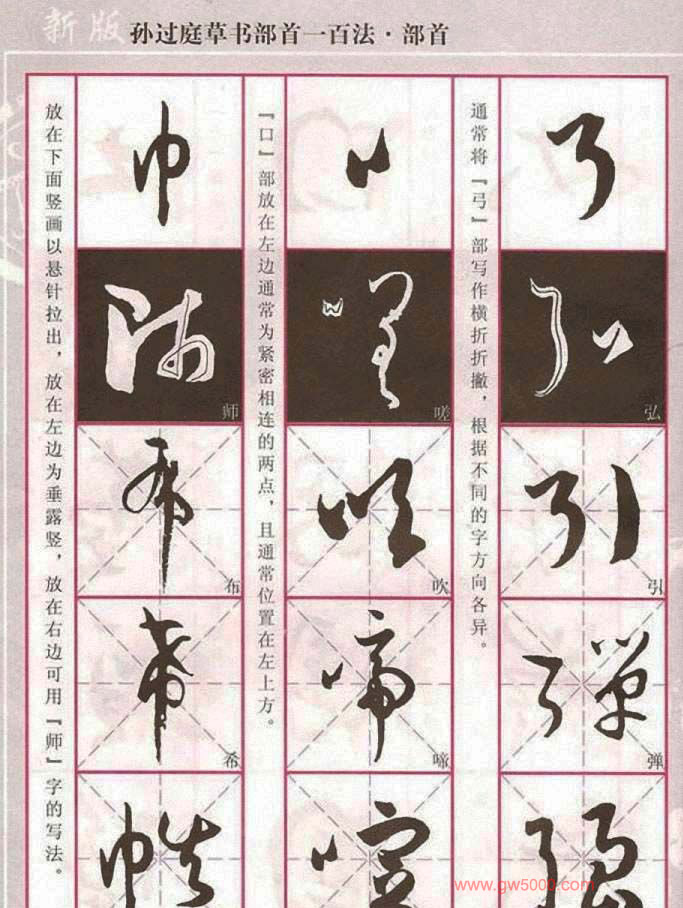 新版 孙过庭草书部首一百法·部首
通常将『弓』部写作横折折撇，根据不同的字方向各异。
弘
引
弹
『口』部放在左边通常为紧密相连的两点，且通常位置在左上方。
嗟
吹
啼
放在下面竖画以悬针拉出，放在左边为垂露竖，放在右边可用『师』字的写法。
师
布
希
www.gw5000.com